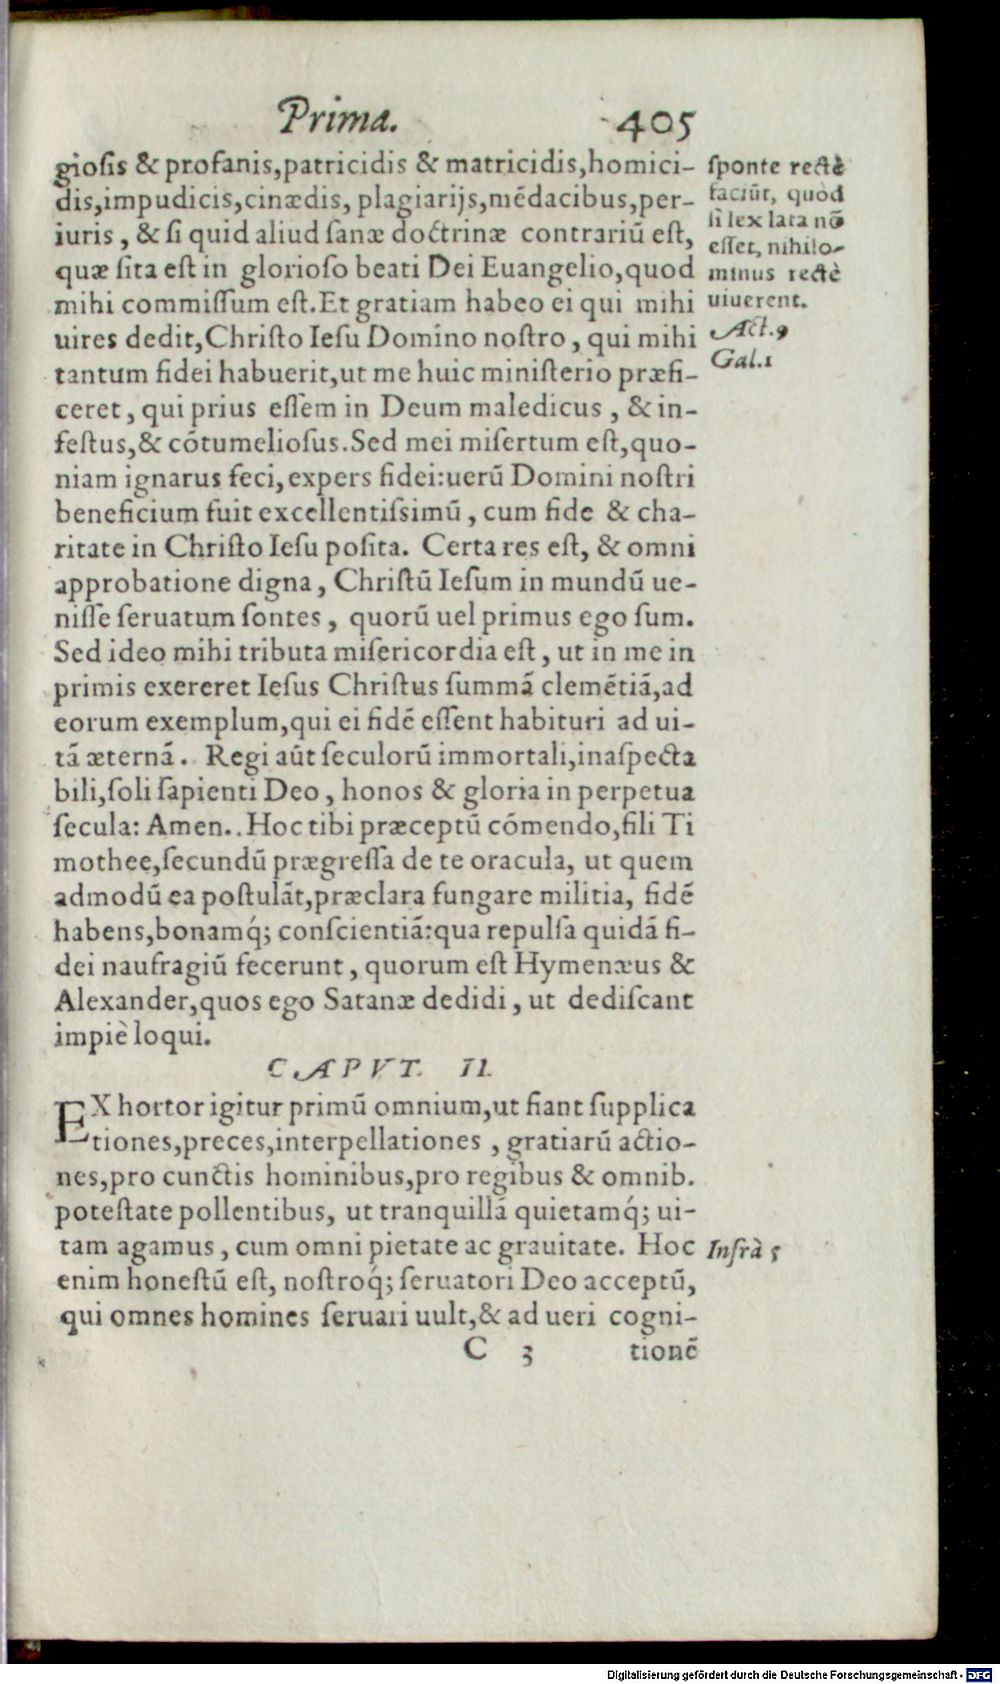 Prima. 405
gioſis & profanis,patricidis & matricidis,homici-
dis,impudicis,cinædis, plagiarijs,mẽdacibus,per-
iuris, & ſi quid aliud ſanæ doctrinæ contrariũ eſt,
quæ ſita eſt in glorioſo beati Dei Euangelio,quod
mihi commiſſum eſt.Et gratiam habeo ei qui mihi
uires dedit,Chriſto Ieſu Domino noſtro, qui mihi
tantum fidei habuerit,ut me huic miniſterio præfi-
ceret, qui prius eſſem in Deum maledicus, & in-
feſtus,& cõtumelioſus.Sed mei miſertum eſt,quo-
niam ignarus feci,expers fidei:uerũ Domini noſtri
beneficium fuit excellentiſsimũ, cum fide & cha-
ritate in Chriſto Ieſu poſita. Certa res eſt, & omni
approbatione digna, Chriſtũ Ieſum in mundũ ue-
niſſe ſeruatum ſontes, quorũ uel primus ego ſum.
Sed ideo mihi tributa miſericordia eſt, ut in me in
primis exereret Ieſus Chriſtus ſummã clemẽtiã,ad
eorum exemplum,qui ei fidẽ eſſent habituri ad ui-
tã æternã. Regi aũt ſeculorũ immortali,inaſpecta
bili,ſoli ſapienti Deo, honos & gloria in perpetua
ſecula: Amen.. Hoc tibi præceptũ cõmendo,fili Ti
mothee,ſecundũ prægreſſa de te oracula, ut quem
admodũ ea poſtulãt,præclara fungare militia, fidẽ
habens,bonamq́; conſcientiã:qua repulſa quidã fi-
dei naufragiũ fecerunt, quorum eſt Hymenæus &
Alexander,quos ego Satanæ dedidi, ut dediſcant
impiè loqui.
CAPVT. II.
EX hortor igitur primũ omnium,ut fiant ſupplica
tiones,preces,interpellationes, gratiarũ actio-
nes,pro cunctis hominibus,pro regibus & omnib.
poteſtate pollentibus, ut tranquillã quietamq́; ui-
tam agamus, cum omni pietate ac grauitate. Hoc
enim honeſtũ eſt, noſtroq́; ſeruatori Deo acceptũ,
qui omnes homines ſeruari uult,& ad ueri cogni-
C 3 tionẽ
ſponte rectè
faciũt, quòd
ſi lex lata nõ
eſſet, nihilo-
minus rectè
uiuerent.
Act.9
Gal.1
Infrà 5
Digitalisierung gefördert durch die Deutsche Forschungsgemeinschaft - DFG